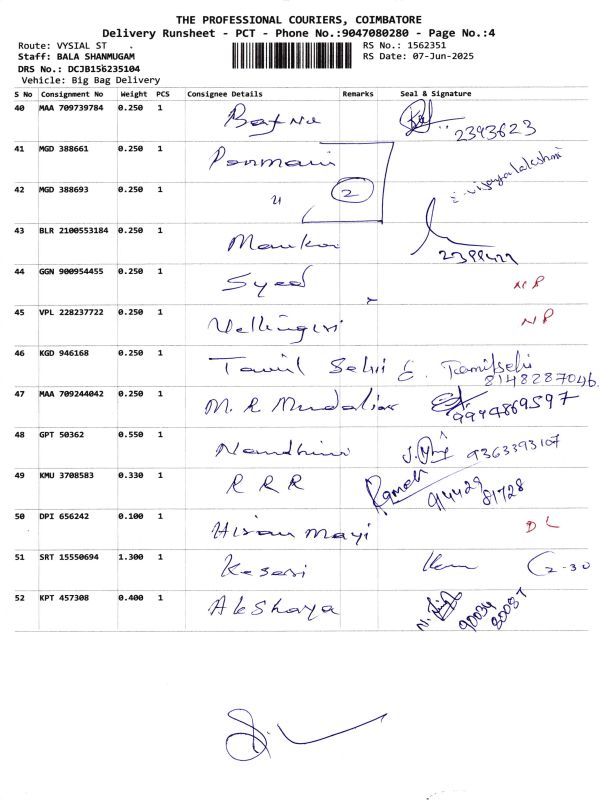 THE PROFESSIONAL COURIERS, COIMBATORE
Delivery Runsheet - PCT - Phone No.:9047080280 - Page No.:4
Route: VYSIAL ST . RS No.: 1562351
Staff: BALA SHANMUGAM RS Date: 07-Jun-2025
DRS No.: DCJB156235104
Vehicle: Big Bag Delivery
S No Consignment No Weight PCS Consignee Details Remarks Seal & Signature
40 MAA 709739784 0.250 1 2393623
41 MGD 388661 0.250 1 Ponmani
42 MGD 388693 0.250 1 2 vijayalakshmi
43 BLR 2100553184 0.250 1
44 GGN 900954455 0.250 1 Syed NP
45 VPL 228237722 0.250 1 Vellingiri NP
46 KGD 946168 0.250 1 Tamil Selvi E. Tamilselvi
8148287046
47 MAA 709244042 0.250 1 M. R Mudaliar 9994869597
48 GPT 50362 0.550 1 Nandhini 9363393107
49 KMU 3708583 0.330 1 R R R Ramesh 94429
81728
50 DPI 656242 0.100 1 Hiranmayi DL
51 SRT 15550694 1.300 1 Kesari 2-30
52 KPT 457308 0.400 1 Akshaya